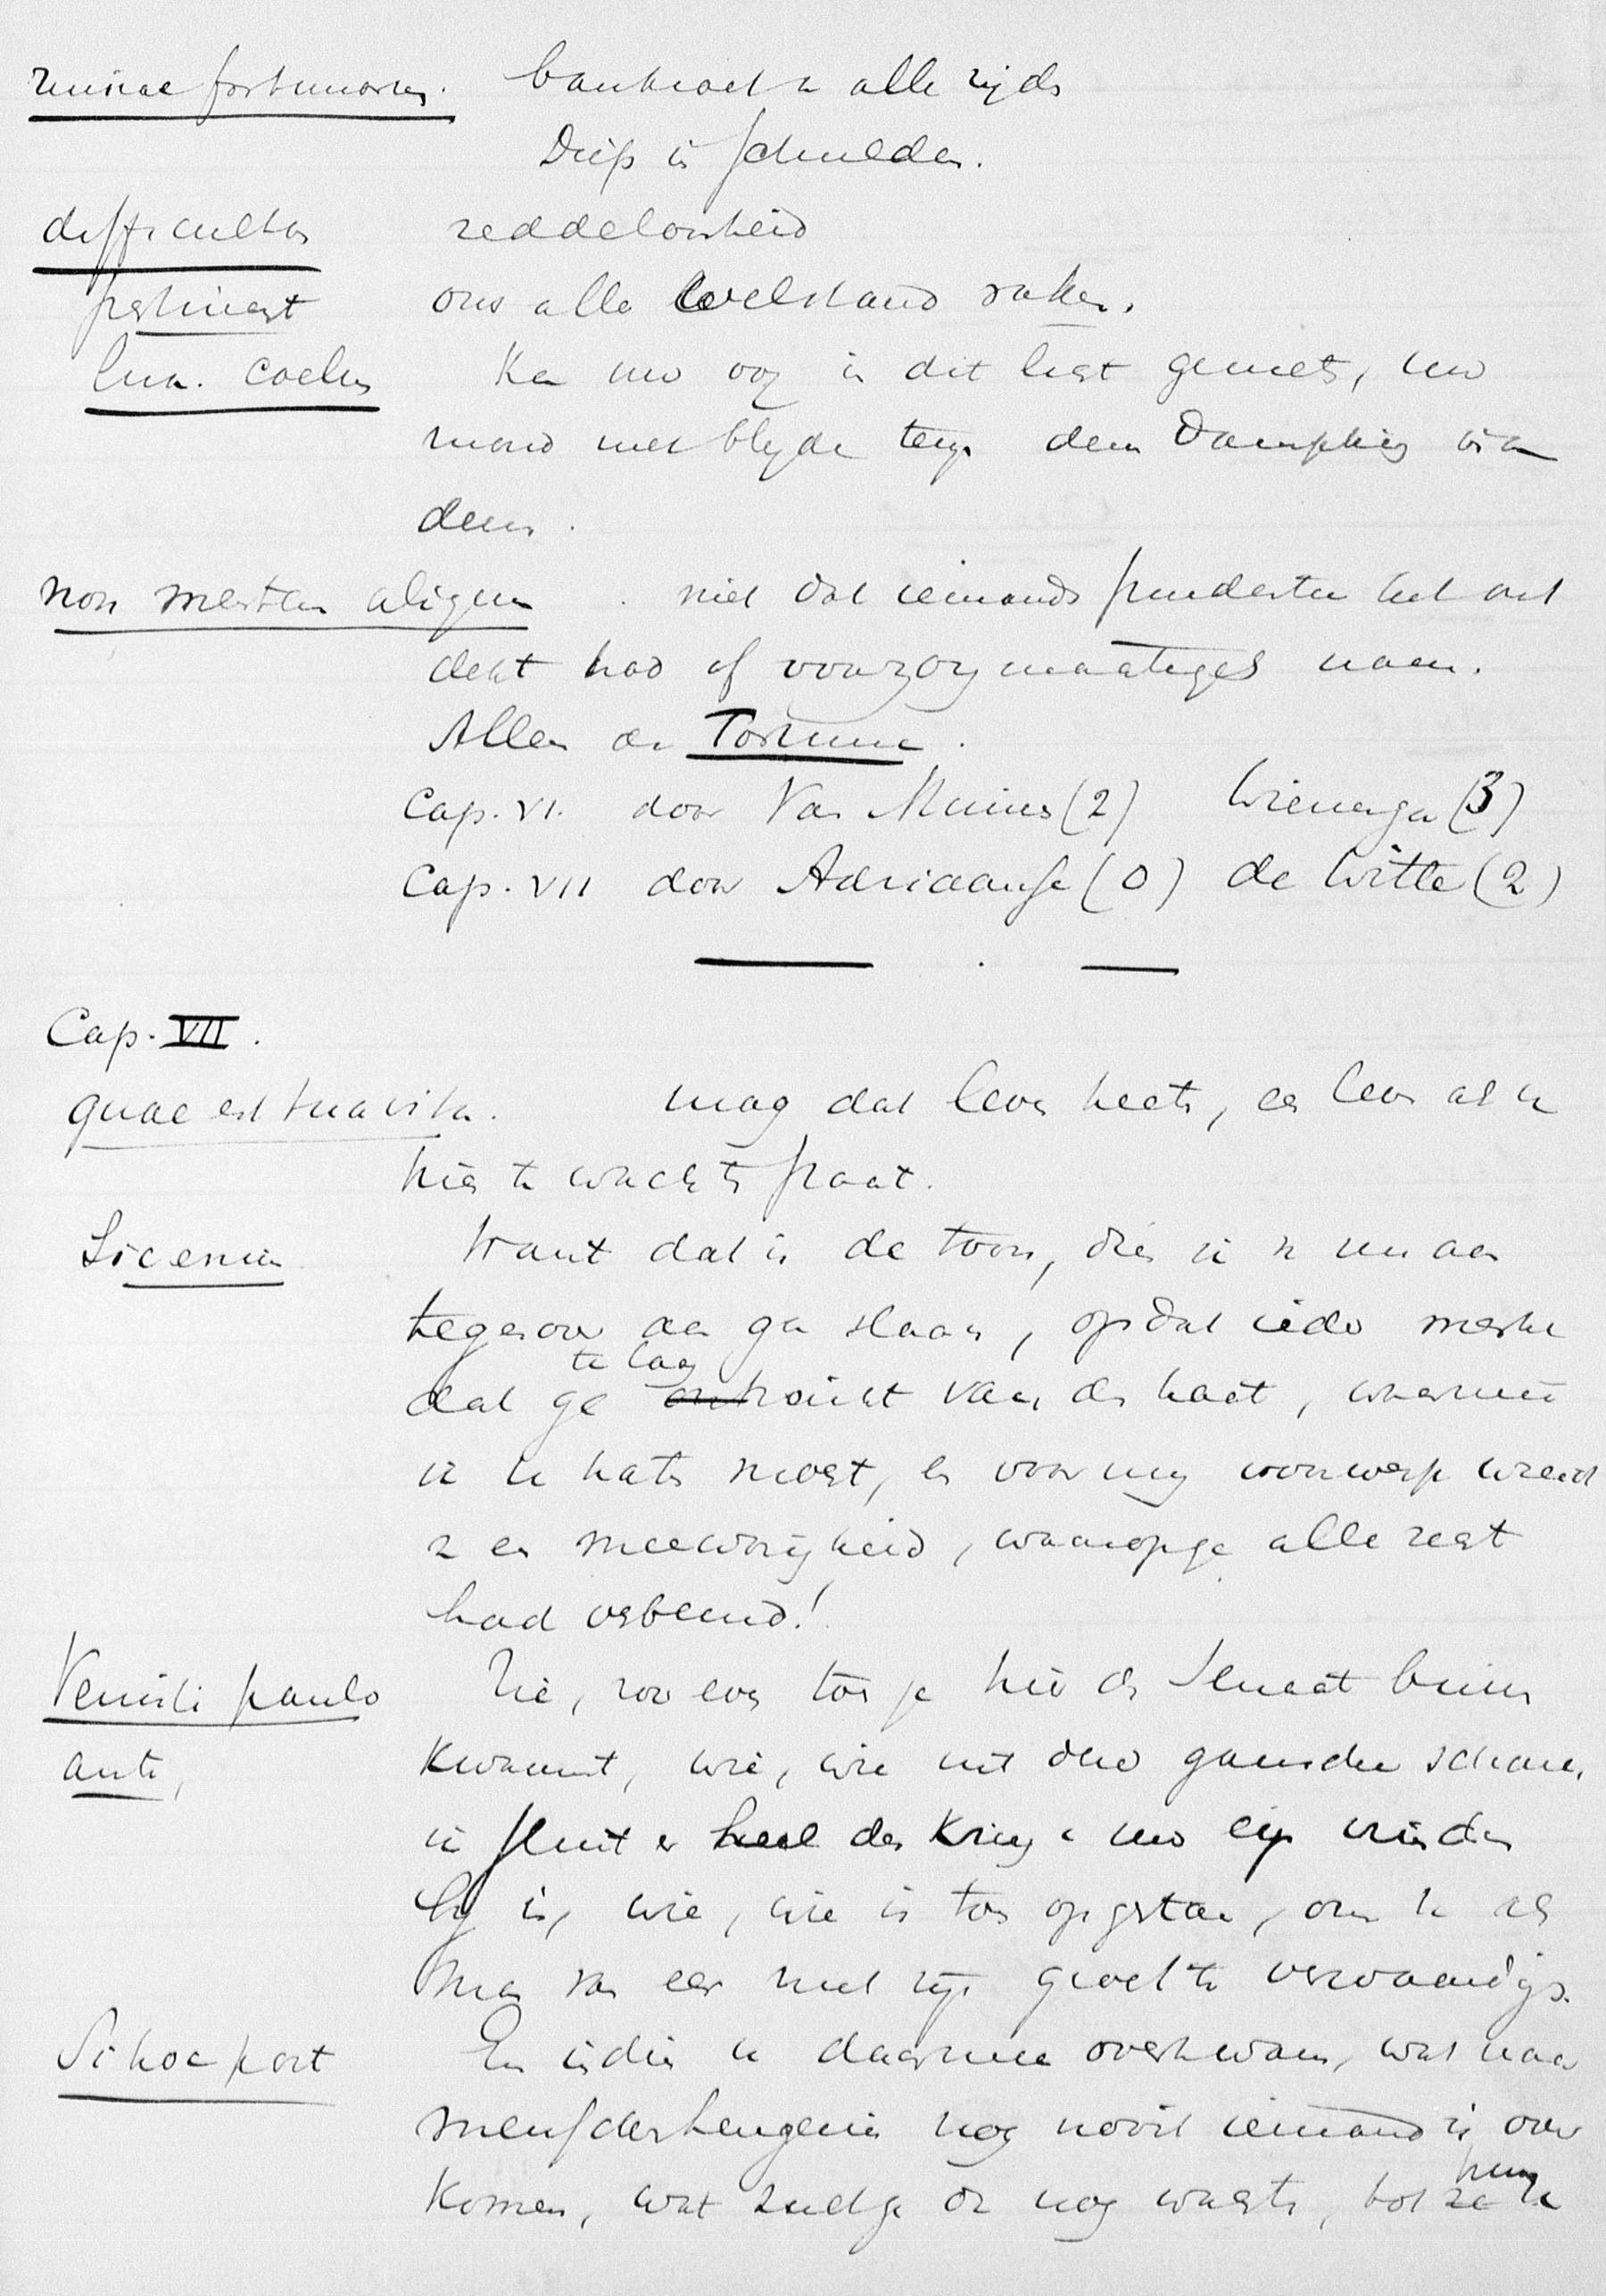 ruinae fortunarum. bankroet u alle zijds
Diep in schulden.
difficultas reddeloosheid
pertinent ons alle welstand raken.
lux. coelus Kan uw oog in dit licht geniets, uw
mond met blyde teug den Dampkring in a
dem.
non mertem aliquem . niet dat iemands prudentie het ont
dekt had of voorzorgmaatregel nam.
Alleen de Fortuna.
Cap. VI. door Van Munes (2) Wienenga (3)
Cap. VII door Adriaanse (0) de Witte (2)
Cap. VII.
quae est tua vita. mag dat leven heets, een leven als u
hier te wachts staat.
Sic enim Want dat is de toon, dien ik u nu aan
tegenover aan ga slaan, opdat ieder merke
te laag
dat ge ontvonkt van de haat, waarmee
ik u hats moest, en voor my voorwerp wierd
van meewarigheid, waarop ge alle recht
had verbeurd!
Venisti paulo Zie, zoo even toen je hier de Senaat binnen
ante, kwaamt, wie, wie uit dees gansche schare,
ik sluit er heel den Kring van uw eigen vrinden
by in, wie, wie is toen opgestaan, om u als
man van eer met zijn groet te verwaardigen.
Si hoc post En indien u daarmee overkwam, wat naar
menschenheugenis nog nooit iemand is over
komen, wat zult ge dan nog wachten, tot ze u
hun